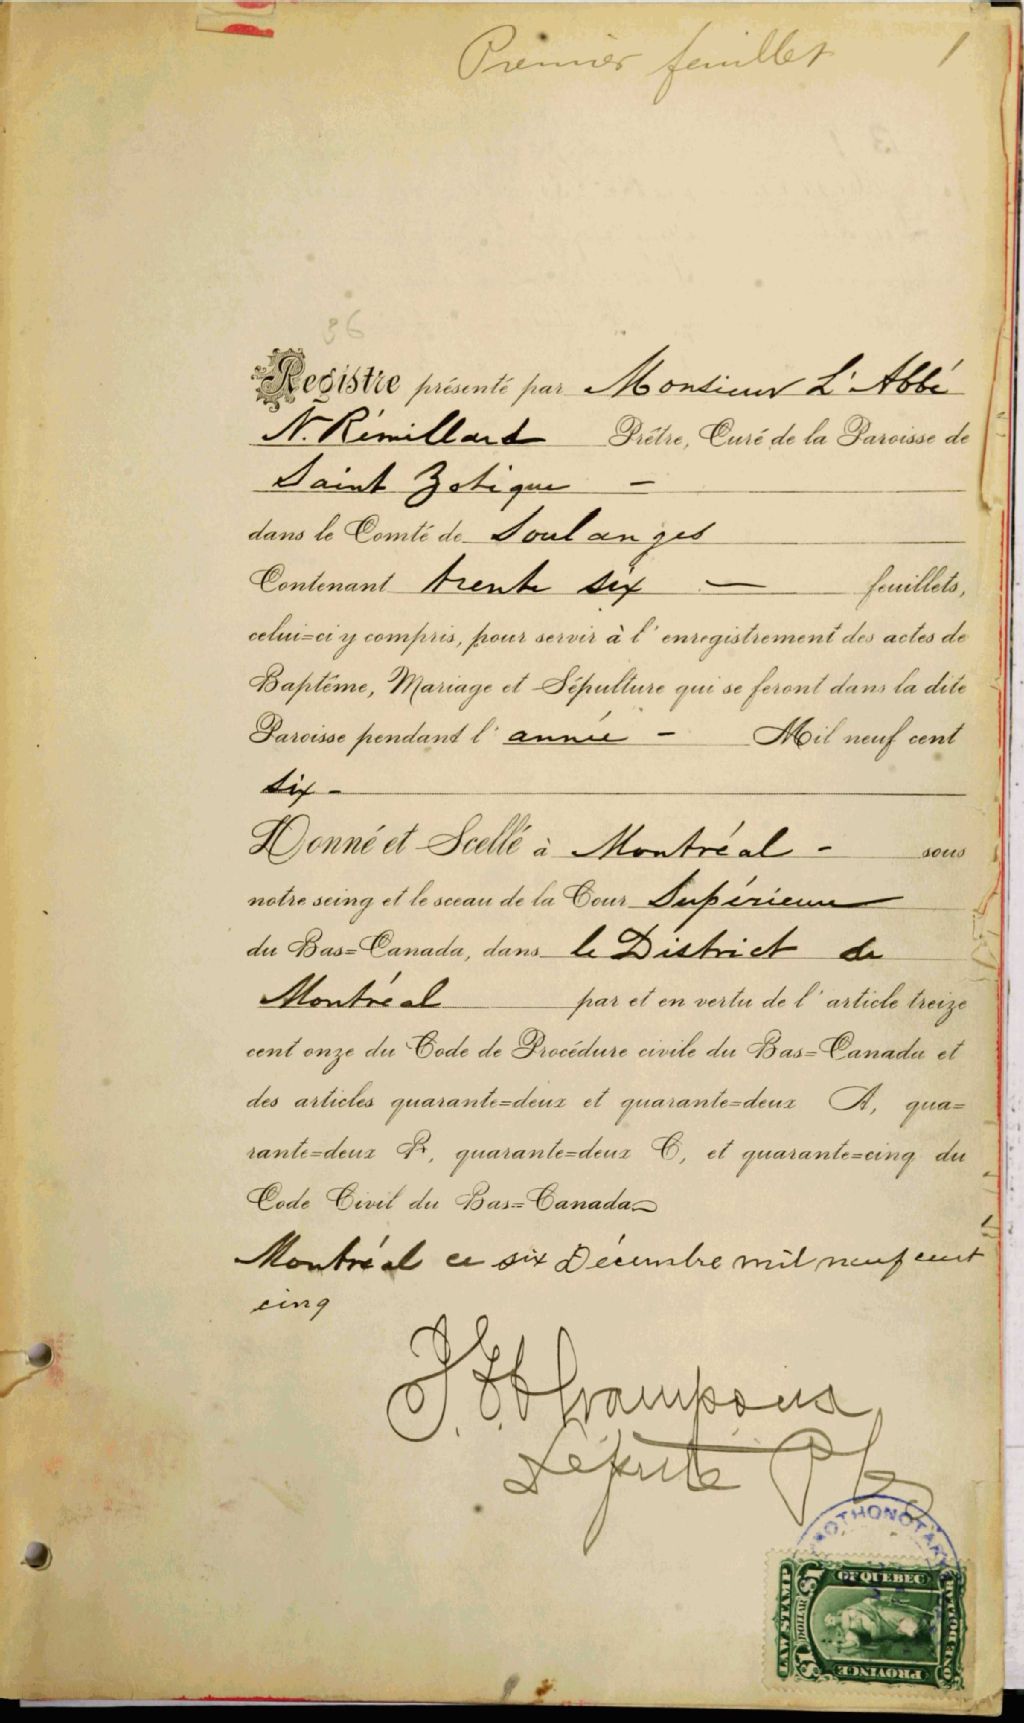 Premier feuillet 1
36
Registre présenté par Monsieur L'Abbé
N. Rémillard Prêtre, Curé de la Paroisse de
Saint Zotique -
dans le Comté de Soulanges
Contenant trente six — feuillets,
celui=ci y compris, pour servir à l'enregistrement des actes de
Baptême, Mariage et Sépulture qui se feront dans la dite
Paroisse pendant l'année - Mil neuf cent
six -
Donné et Scellé à Montréal - sous
notre seing et le sceau de la Cour Supérieure
du Bas=Canada, dans le District de
Montréal par et en vertu de l'article treize
cent onze du Code de Procédure civile du Bas=Canada et
des articles quarante=deux et quarante=deux A, qua=
rante=deux B, quarante=deux C, et quarante=cinq du
Code Civil du Bas=Canada
Montréal ce six Décembre mil neuf cent
cinq
Député
PROTHONOTARY
LAW STAMP
$1 DOLLAR
OF QUEBEC
PROVINCE
ONE DOLLAR
$1